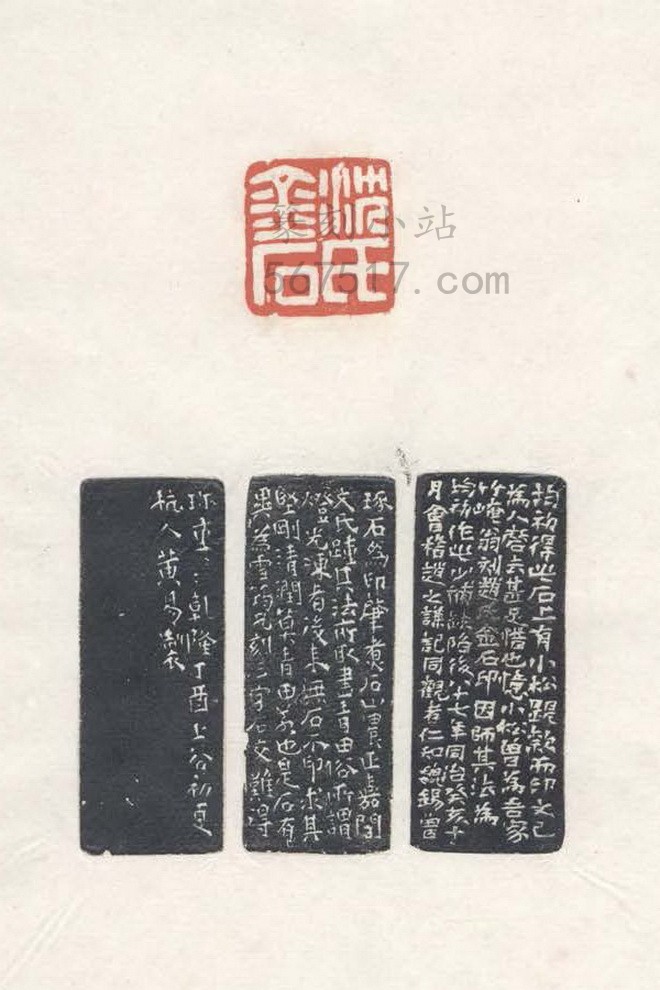 沈氏
金石
篆刻小站
567517.com
均初得此石上有小松觀款而印文已
為人磨去甚足惜也憶小松曾為吾家
竹崦翁刻趙氏金石印因師其法為
均初作此少補缺陷後八十七年同治癸亥十
月會稽趙之謙記同觀者仁和魏錫曾
琢石為印肇煮石山農正嘉間
文氏踵其法所取盡青田俗所謂
燈光凍者後來無石不印求其
堅剛清潤莫青田若也是石有
異為雪筠兄刻三字石交難得
珍重〻〻乾隆丁酉上谷初夏
杭人黃易製